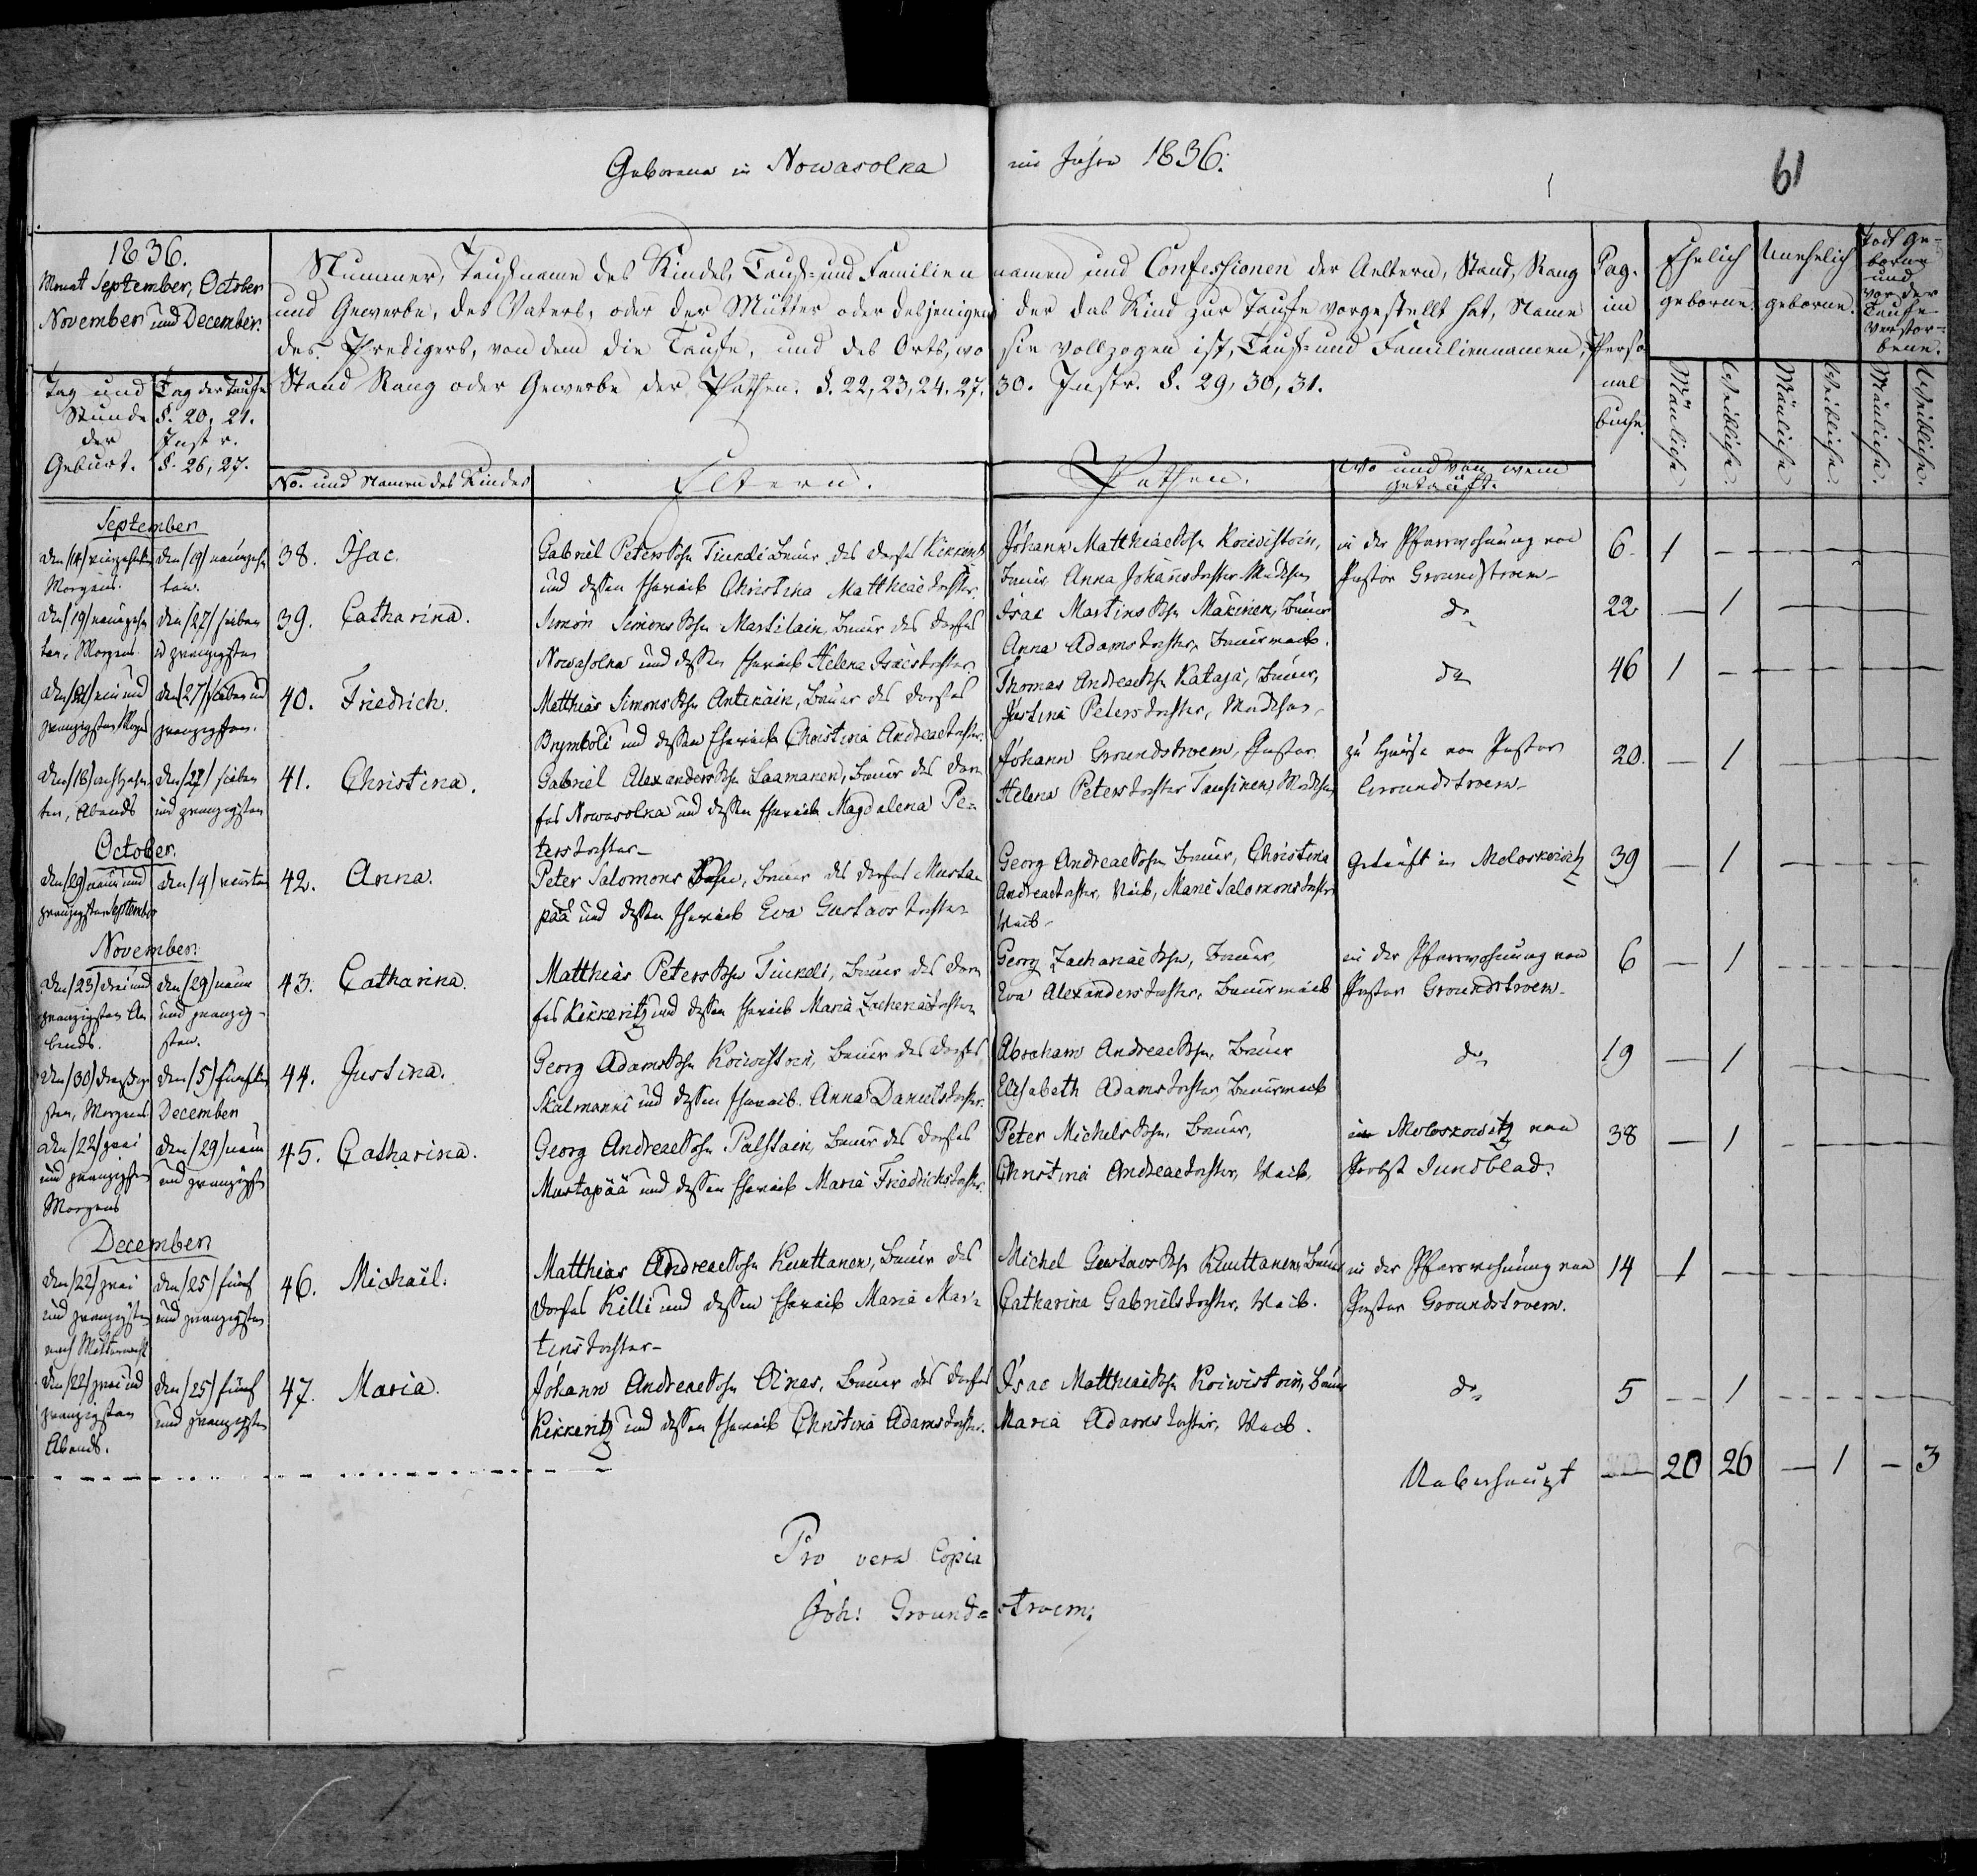 Geborene in Nowasolka im Jahre 1836.
61
1836.
Monat September, October
November und December.
Tag und Stunde der Geburt.
Tag der Taufe §. 20, 21. Instr. §. 26, 27.
Nummer, Taufname des Kindes, Tauf- und Familiennamen und Confessionen der Aeltern, Stand, Rang
und Gewerbe, des Vaters, oder der Mutter oder desjenigen der das Kind zur Taufe vorgestellt hat, Name
des Predigers, von dem die Taufe, und des Orts, wo sie vollzogen ist, Tauf- und Familiennamen,
Stand Rang oder Gewerbe der Pathen. §. 22, 23, 24. 27. 30. Instr. §. 29, 30, 31.
No. und Namen des Kindes
Eltern.
Pathen.
Wo und von wem getauft.
Pag. im Personalbuche.
Ehelich geborne.
Unehelich geborne.
Todt geborne und vor der Taufe verstorbene.
Mänliche Weibliche. Mänliche Weibliche. Mänliche. Weibliche.
September
den (14) vierzehnten Morgens.
den (19) neunzehnten.
38. Isac.
Gabriel Peters Sohn Tiukdi Bauer des Dorfes
und dessen Eheweib Christina Matthiaetochter.
Johann Matthiae Sohn Koiwistoin,
Bauer, Anna Johanstochter Mädchen
in der Pfarrwohnung von
Pastor Groundstroem
6. 1 — — — — —
den (19) neunzehnten, Morgens
den (27) sieben u zwanzigsten
39. Catharina.
Simon Simons Sohn Martilain, Bauer des Dorfes
Nowasolka und dessen Eheweib Helena Isacs tochter
Isac Martins Sohn Makinen, Bauer
Anna Adams tochter, Bauerweib.
do
22 — 1 — — — —
den (21) ein und zwanzigsten Morgens
den (27) sieben und zwanzigsten.
40. Friedrich.
Matthias Simons Sohn Antikain, Bauer des Dorfes
Brymboli und dessen Eheweib Christina Andreaetochter.
Thomas Andreae Sohn Kataja, Bauer,
Justina Peters tochter, Mädchen
do
46 1 — — — — —
den (18) achtzehnten, Abends
den (27) sieben und zwanzigsten
41. Christina.
Gabriel Alexanders Sohn Laamanen, Bauer des Dorfes
Nowasolka und dessen Eheweib Magdalena Peters
tochter
Johann Groundstroem, Pastor
Helena Peters tochter Mädchen
zu Hause von Pastor
Groundstroem
20. — 1 — — — —
October.
den (29) neun und zwanzigsten September
den (4) vierten
42. Anna.
Peter Salomons Sohn, Bauer des Dorfes Musta
pää und dessen Eheweib Eva Gustavs tochter
Georg Andreae Sohn Bauer, Christina
Andreaetochter, Weib, Maria Salomons tochter
Weib
Getauft in Moloskowitz
39 — 1 — — — —
November.
den (23) drei und zwanzigsten Abends.
den (29) neun und zwanzigsten.
43. Catharina.
Matthias Peters Sohn Tiukdi, Bauer des Dorfes
Kikkeritz und dessen Eheweib Maria Zachariae tochter
Georg Zachariae Sohn, Bauer,
Eva Alexanders tochter, Bauerweib
in der Pfarrwohnung von
Pastor Groundstroem.
6 — 1 — — — —
den (30) dreißigsten, Morgens
den (5) fünften December
44. Justina.
Georg Adams Sohn Koiwistoin, Bauer des Dorfes
Skalmanki und dessen Eheweib Anna Daniels tochter.
Abraham Andreae Sohn, Bauer
Elisabeth Adams tochter, Bauerweib
do
19 — 1 — — — —
den (22) zwei und zwanzigsten Morgens
den (29) neun und zwanzigsten
45. Catharina.
Georg Andreae Sohn Palssain, Bauer des Dorfes
Mustapää und dessen Eheweib Maria Friedrichs tochter.
Peter Michels Sohn, Bauer,
Christina Andreae tochter, Weib,
Moloskowitz von
Probst Sundblad.
38 — 1 — — — —
December
den (22) zwei und zwanzigsten nach Mitternacht
den (25) fünf und zwanzigsten
46. Michail.
Matthias Andreae Sohn Kunttanen, Bauer des
Dorfes Killi und dessen Eheweib Maria Mar-
tins tochter
Michel Gustavs Sohn Kunttanen, Bauer
Catharina Gabriels tochter, Weib.
in der Pfarrwohnung von
Pastor Groundstroem.
14 1 — — — — —
den (22) zwei und zwanzigsten Abends.
den (25) fünf und zwanzigsten
47. Maria.
Johann Andreae Sohn Oinas, Bauer des Dorfes
Kikkeritz und dessen Eheweib Christina Adams tochter.
Isac Matthiae Sohn Koiwistoin, Bauer
Maria Adams tochter, Weib.
do
5 — 1 — — — —
Ueberhaupt — 20 26 — 1 — 3
Pro vera Copia
Joh: Ground=stroem.